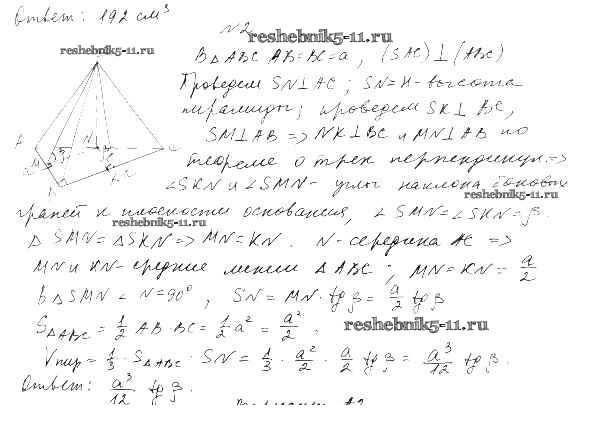 Ответ: 192 см³
N2
reshebnik5-11.ru
reshebnik5-11.ru
В △ ABC AB=BC=a, (SAC)⊥(ABC)
Проведем SN⊥AC; SN=H - высота
пирамиды; проведем SK⊥BC,
SM⊥AB => NK⊥BC и MN⊥AB по
теореме о трех перпендикул. =>
∠SKN и ∠SMN - углы наклона боковых
граней к плоскости основания, ∠SMN=∠SKN=β.
reshebnik5-11.ru
reshebnik5-11.ru
△ SMN=△SKN => MN=KN. N-середина AC =>
MN и KN - средние линии △ ABC; MN=KN= a/2
В △ SMN ∠ N=90°, SN = MN · tg β = a/2 tg β
S△ABC = 1/2 AB · BC = 1/2 a² = a²/2.
reshebnik5-11.ru
Vпир = 1/3 · S△ABC · SN = 1/3 · a²/2 · a/2 tg β = a³/12 tg β.
Ответ: a³/12 tg β.